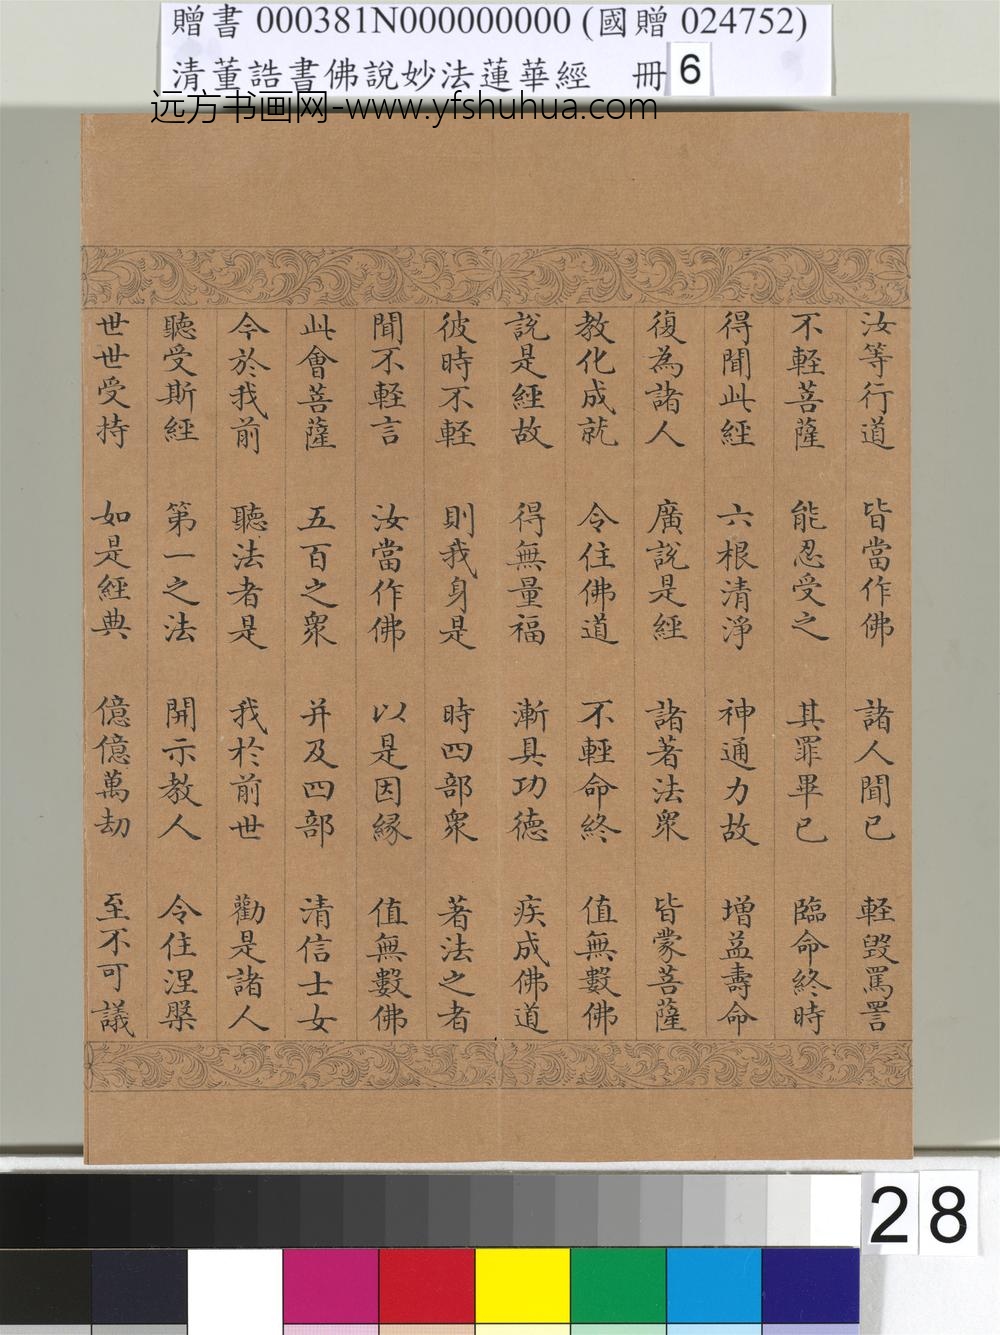 贈書 000381N000000000 (國贈 024752)
清董誥書佛說妙法蓮華經 冊 6
远方书画网-www.yfshuhua.com
汝等行道 皆當作佛 諸人聞已 輕毀罵詈
不輕菩薩 能忍受之 其罪畢已 臨命終時
得聞此經 六根清淨 神通力故 增益壽命
復為諸人 廣說是經 諸著法眾 皆蒙菩薩
教化成就 令住佛道 不輕命終 值無數佛
說是經故 得無量福 漸具功德 疾成佛道
彼時不輕 則我身是 時四部眾 著法之者
聞不輕言 汝當作佛 以是因緣 值無數佛
此會菩薩 五百之眾 并及四部 清信士女
今於我前 聽法者是 我於前世 勸是諸人
聽受斯經 第一之法 開示教人 令住涅槃
世世受持 如是經典 億億萬劫 至不可議
28